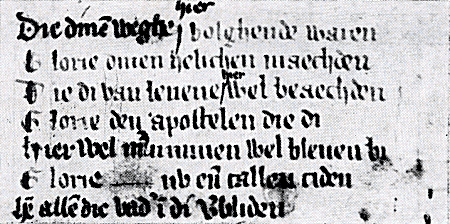 Die dinē weghe hier volghende waren
Glorie onsen heilichen maechden
Die di van levene hier wel beaechden
Glorie den apostelen die di
hier wel minnen wel bleven bi
Glorie nv eñ tallen tiden
alle die vad ī di v̄bliden